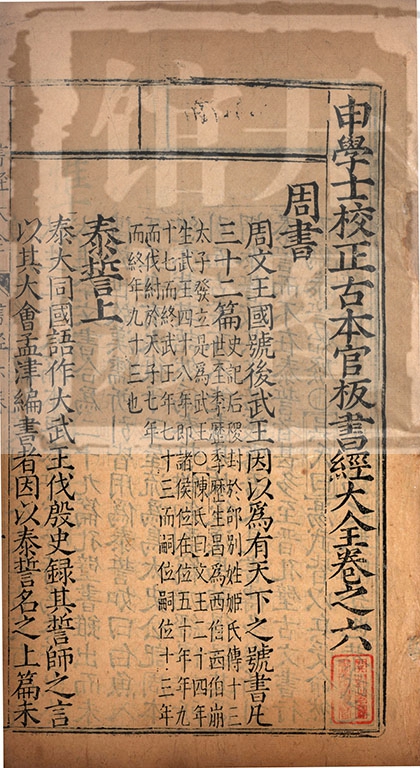 申學士校正古本官板書經大全卷之六
周書
周文王國號後武王因以爲有天下之號書凡
三十二篇
史記后稷封於邰別姓姬氏傳十三
世至季歷季歷生昌爲西伯西伯崩
太子發立是爲武王○陳氏曰文王二十四年
生武王四十八年即諸侯位在位五十年年九
十七而終武王年七十三而嗣位嗣位十三年
而伐紂於天子七年
而終年九十三也
泰誓上
泰大同國語作大武王伐殷史錄其誓師之言
以其大會孟津編書者因以泰誓名之上篇未